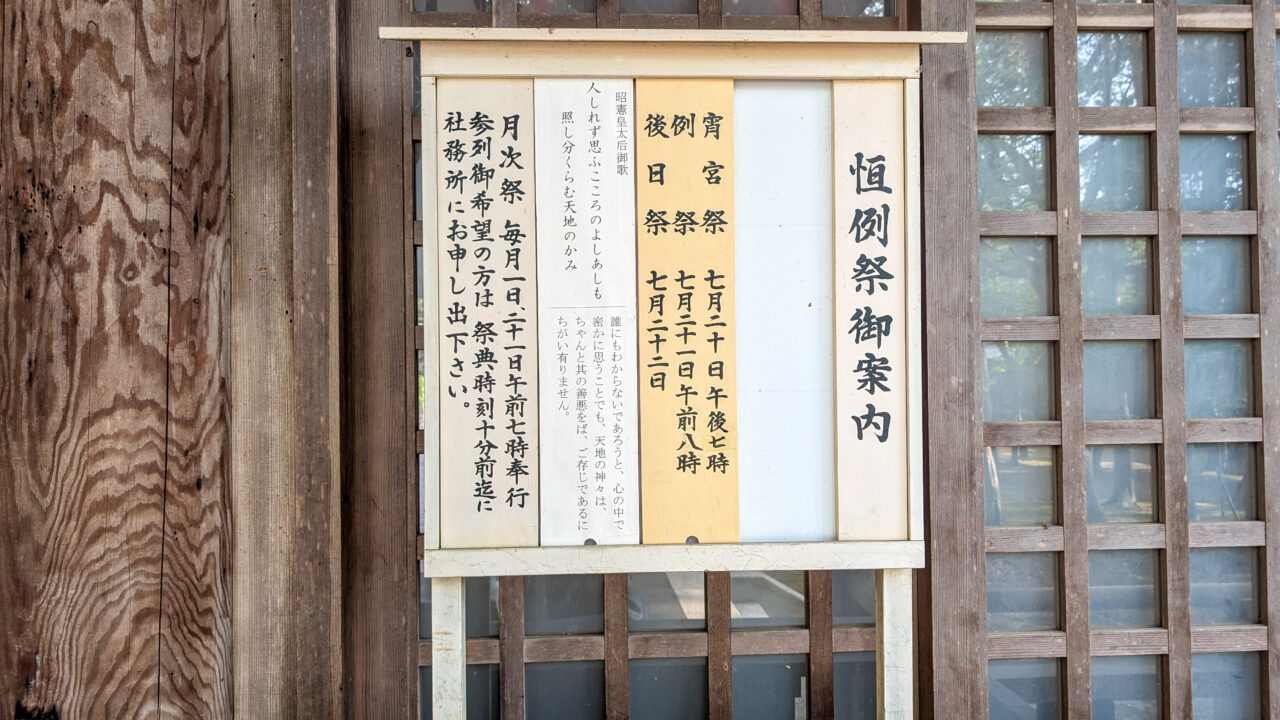 恒例祭御案内
宵宮祭 七月二十日午後七時
例祭 七月二十一日午前八時
後日祭 七月二十二日
昭憲皇太后御歌
人しれず思ふこころのよしあしも
照し分くらむ天地のかみ
誰にもわからないであろうと、心の中で
密かに思うことでも、天地の神々は、
ちゃんと其の善悪をば、ご存じであるに
ちがい有りません。
月次祭 毎月一日、二十一日午前七時奉行
参列御希望の方は 祭典時刻十分前迄に
社務所にお申し出下さい。